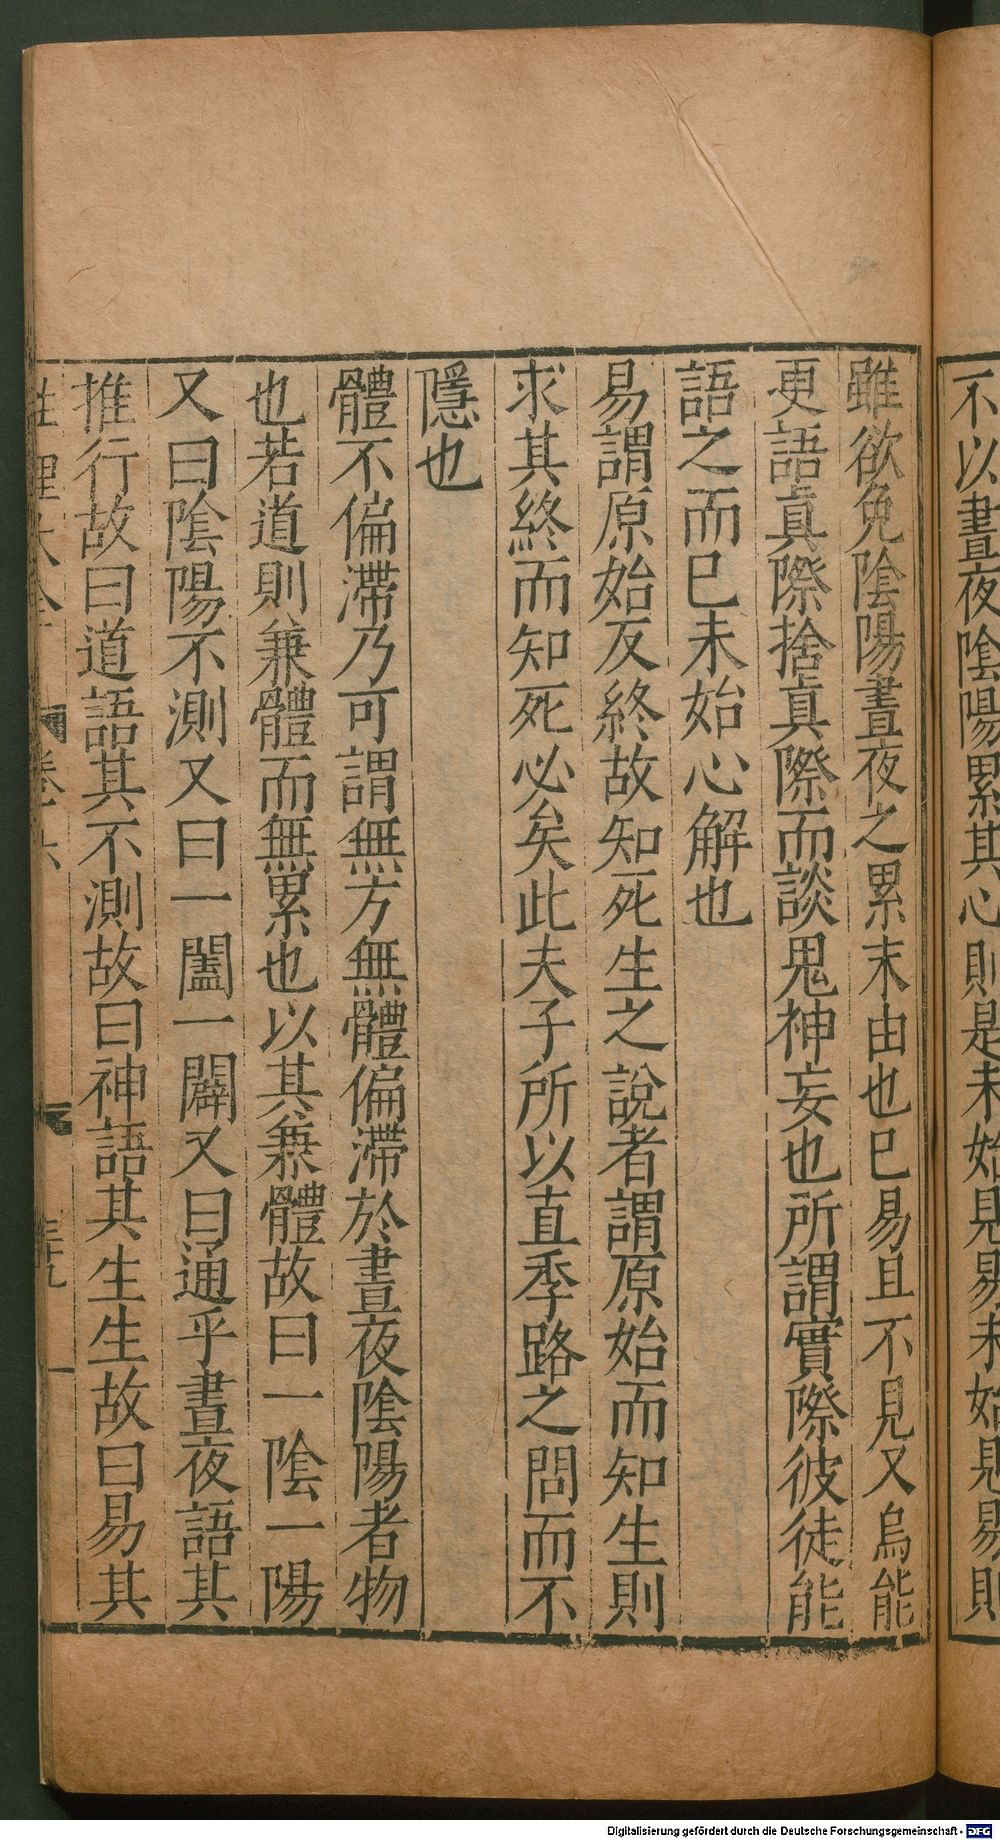 不以晝夜陰陽累其心則是未始見易未始見易則
雖欲免陰陽晝夜之累末由也已易且不見又烏能
更語眞際捨眞際而談鬼神妄也所謂實際彼徒能
語之而已未始心解也
易謂原始反終故知死生之說者謂原始而知生則
求其終而知死必矣此夫子所以直季路之問而不
隱也
體不偏滯乃可謂無方無體偏滯於晝夜陰陽者物
也若道則兼體而無累也以其兼體故曰一陰一陽
又曰陰陽不測又曰一闔一闢又曰通乎晝夜語其
推行故曰道語其不測故曰神語其生生故曰易其
性理大全 卷 六 三十九
Digitalisierung gefördert durch die Deutsche Forschungsgemeinschaft - DFG